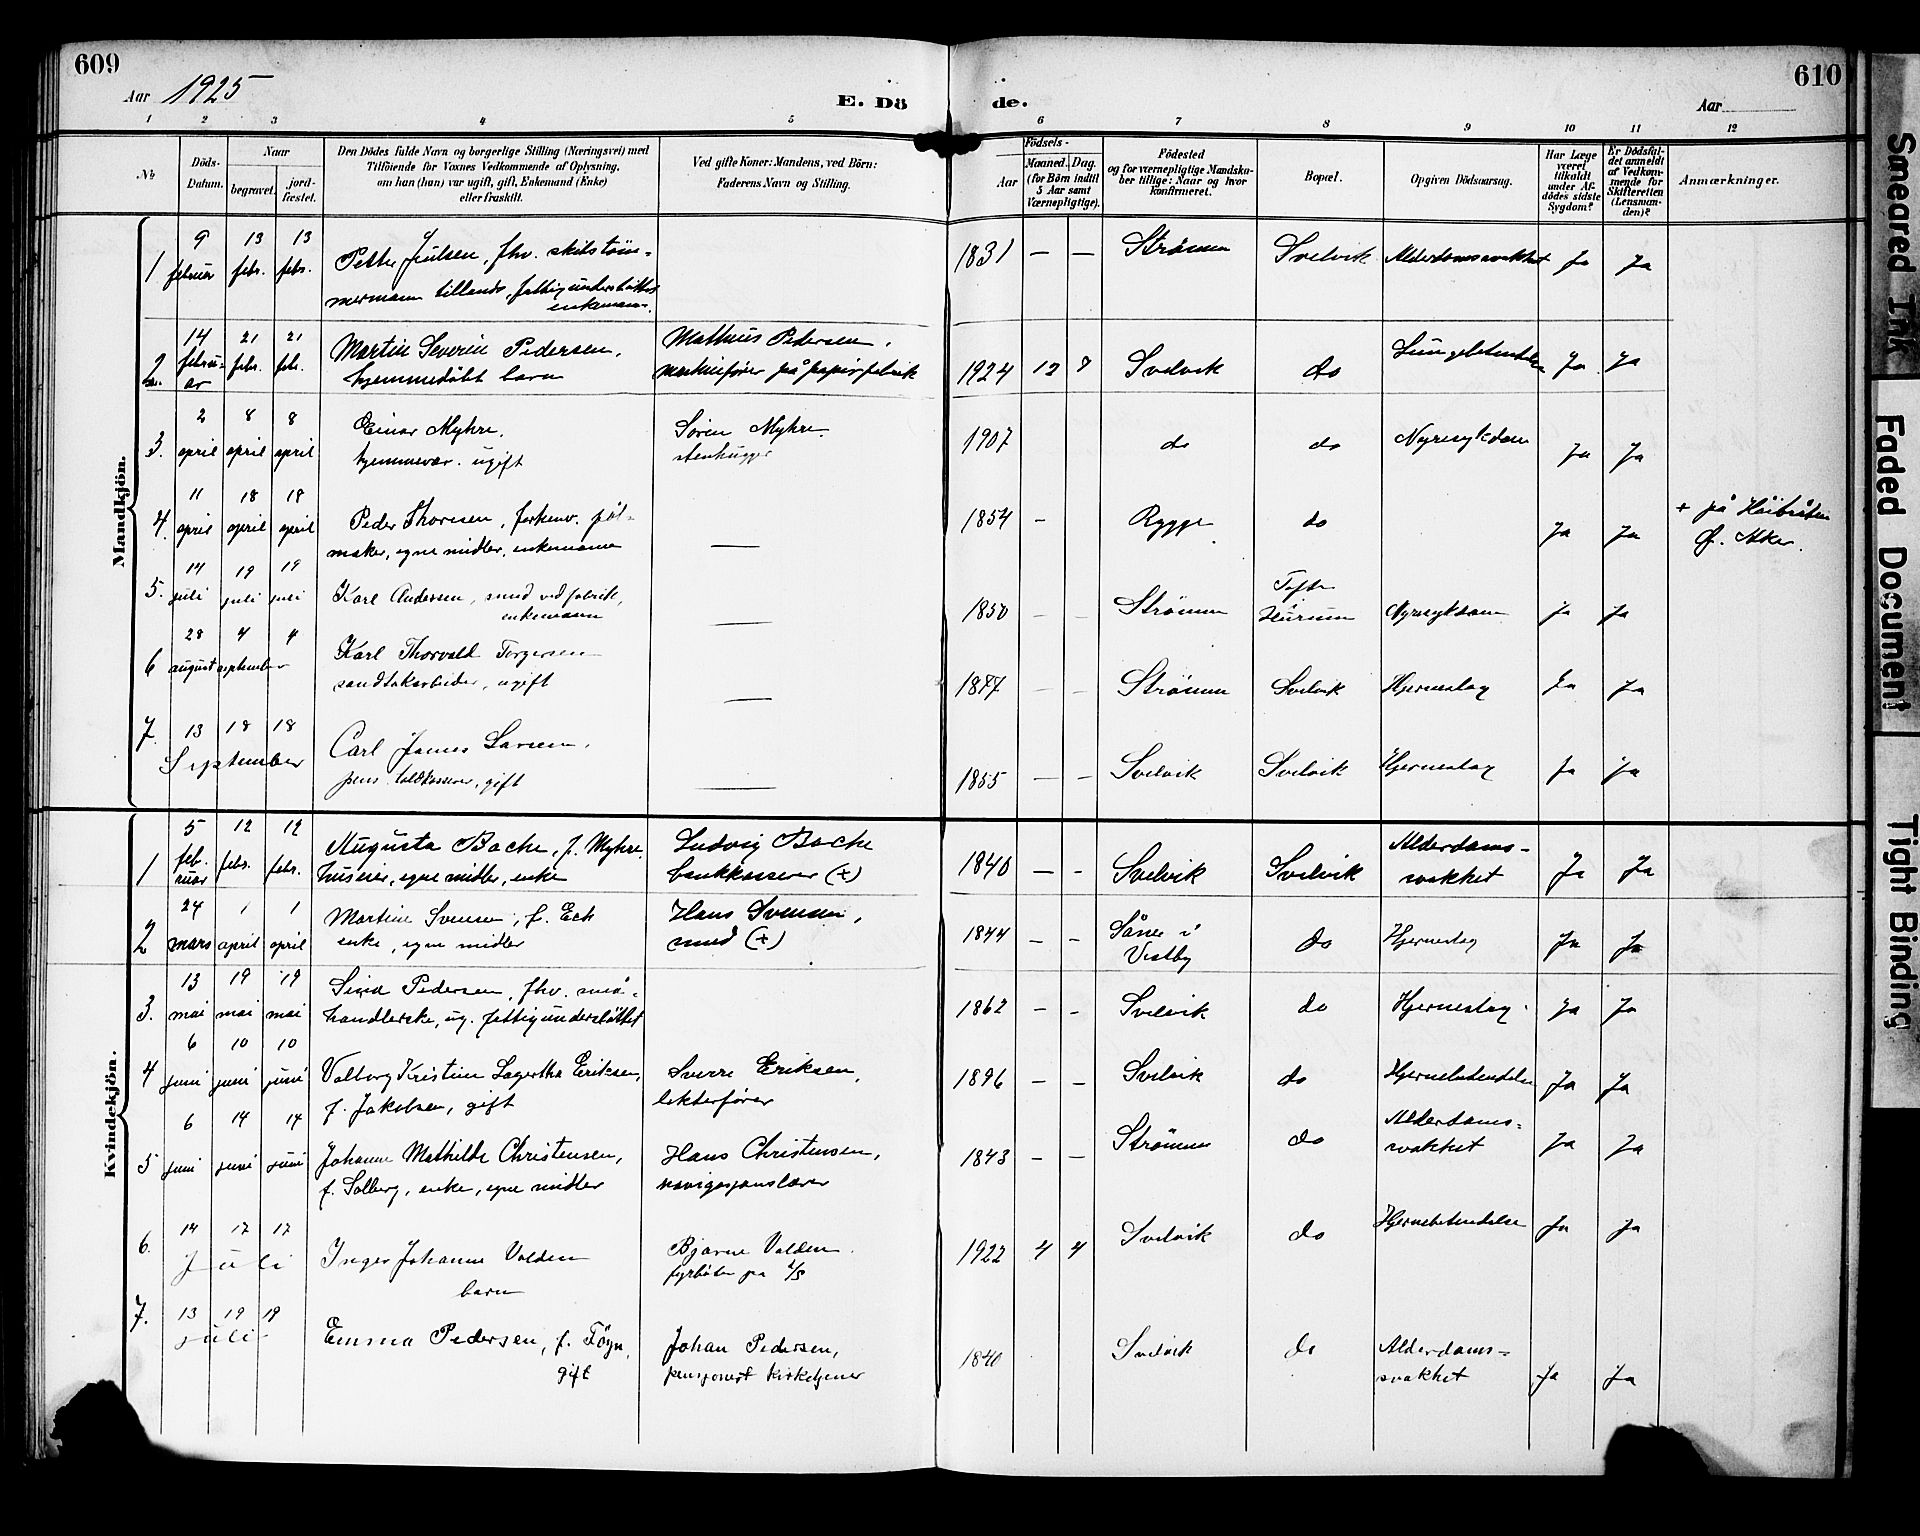 609
610
Aar 1925
E. Dö
de.
Aar
1 2 3 4 5 6 7 8 9 10 11 12
№
Döds-
Datum.
Naar
begravet.
jord-
fæstet.
Den Dödes fulde Navn og borgerlige Stilling (Næringsvei) med
Tilföiende for Voxnes Vedkommende af Oplysning,
om han (hun) var ugift, gift, Enkemand (Enke)
eller fraskilt.
Ved gifte Koner: Mandens, ved Börn:
Faderens Navn og Stilling.
Födsels-
Aar
Maaned. Dag.
(for Börn indtil
5 Aar samt
Værnepligtige).
Födested
og for værnepligtige Mandska-
ber tillige: Naar og hvor
konfirmeret.
Bopæl.
Opgiven Dödsaarsag.
Har Læge
været
tilkaldt
under Af-
dödes sidste
Sygdom?
Er Dödsfal-
det anmeldt
af Vedkom-
mende for
Skifteretten
(Lensman-
den)?
Anmærkninger.
Mandkjön.
9 13 13
1 februar febr. febr. Petter Juulsen, fhv. skibstöm-
mermann tillands, fattigunderstöttet
enkemann.
1831 — — Strömm Svelvik Alderdomssvakhet Ja Ja
14 21 21
2 febru-
ar febr. febr. Martin Severin Pedersen,
hjemmedöbt barn
Mathius Pedersen,
maskinfører på papirfabrik
1924 12 Svelvik do Lungebetendelse Ja Ja
2 8 8
3. april april april Einar Myhre.
hjemmevær. ugift
Søren Myhre.
stenhugger
1907 do do Nyresykdom Ja Ja
11 18 18
4. april april april Peder Thoresen,
maker, egne midler, enkemann —
1854 - Rygge do Ja Ja + på Höibråten
Ø. Aker.
14 19 19
5. juli juli juli Karl Andersen, smed ved fabrik,
enkemann —
1850 - - Strömm Tofte
Hurum Nyresykdom ja Ja
28 4 4
6 august september Karl Thorvald Torgersen
sandtakarbeider, ugift —
1877 - - Strömm Svelvik Hjerneslag Ja Ja
7. 13 18 18
September Carl James Larsen,
pens. tollkasserer, gift —
1855 — - Svelvik Svelvik Hjerneslag Ja Ja
Kvindekjön.
5 12 12
1 feb-
ruar febr. febr. Augusta Bache, f. Myhre.
huseier, egne midler, enke
Ludvig Bache
bankkasserer (+)
1840 — - Svelvik Svelvik Alderdoms-
svakhet Ja Ja
24 1 1
2 mars april april Martine Svensen, f. Eck
enke, egne midler
Hans Svensen,
smed (+)
1844 - - Såner i
Vestby do Hjerneslag Ja Ja
13 19 19
3. mai mai mai Sina Pedersen, fhv. små-
handlerske, ug. fattigunderstöttet
1862 - - Svelvik do Hjerneslag. Ja Ja
6 10 10
4 juni juni juni Valborg Kristine Lagertha Eriksen,
f. Jakobsen, gift
Sverre Eriksen,
lekterfører
1896 - - Svelvik do Hjernebetendelse Ja Ja
6 14 14
5 juni juni juni Johanne Mathilde Christensen,
f. Solberg, enke, egne midler
Hans Christensen,
navigasjonslærer
1843 - - Strömm do Alderdoms-
svakhet Ja Ja
14 17 17
6. Juli Inger Johanne Volden
barn
Bjarne Volden.
fyrbøter på
1922 4 4 Svelvik do Hjernebetendelse Ja Ja
7. 13 19 19
juli Emma Pedersen, f. Föyn,
gift
Johan Pedersen,
pensjonert kirketjener
1840 Svelvik do Alderdoms-
svakhet Ja Ja
Smeared Ink
Faded Document
Tight Binding